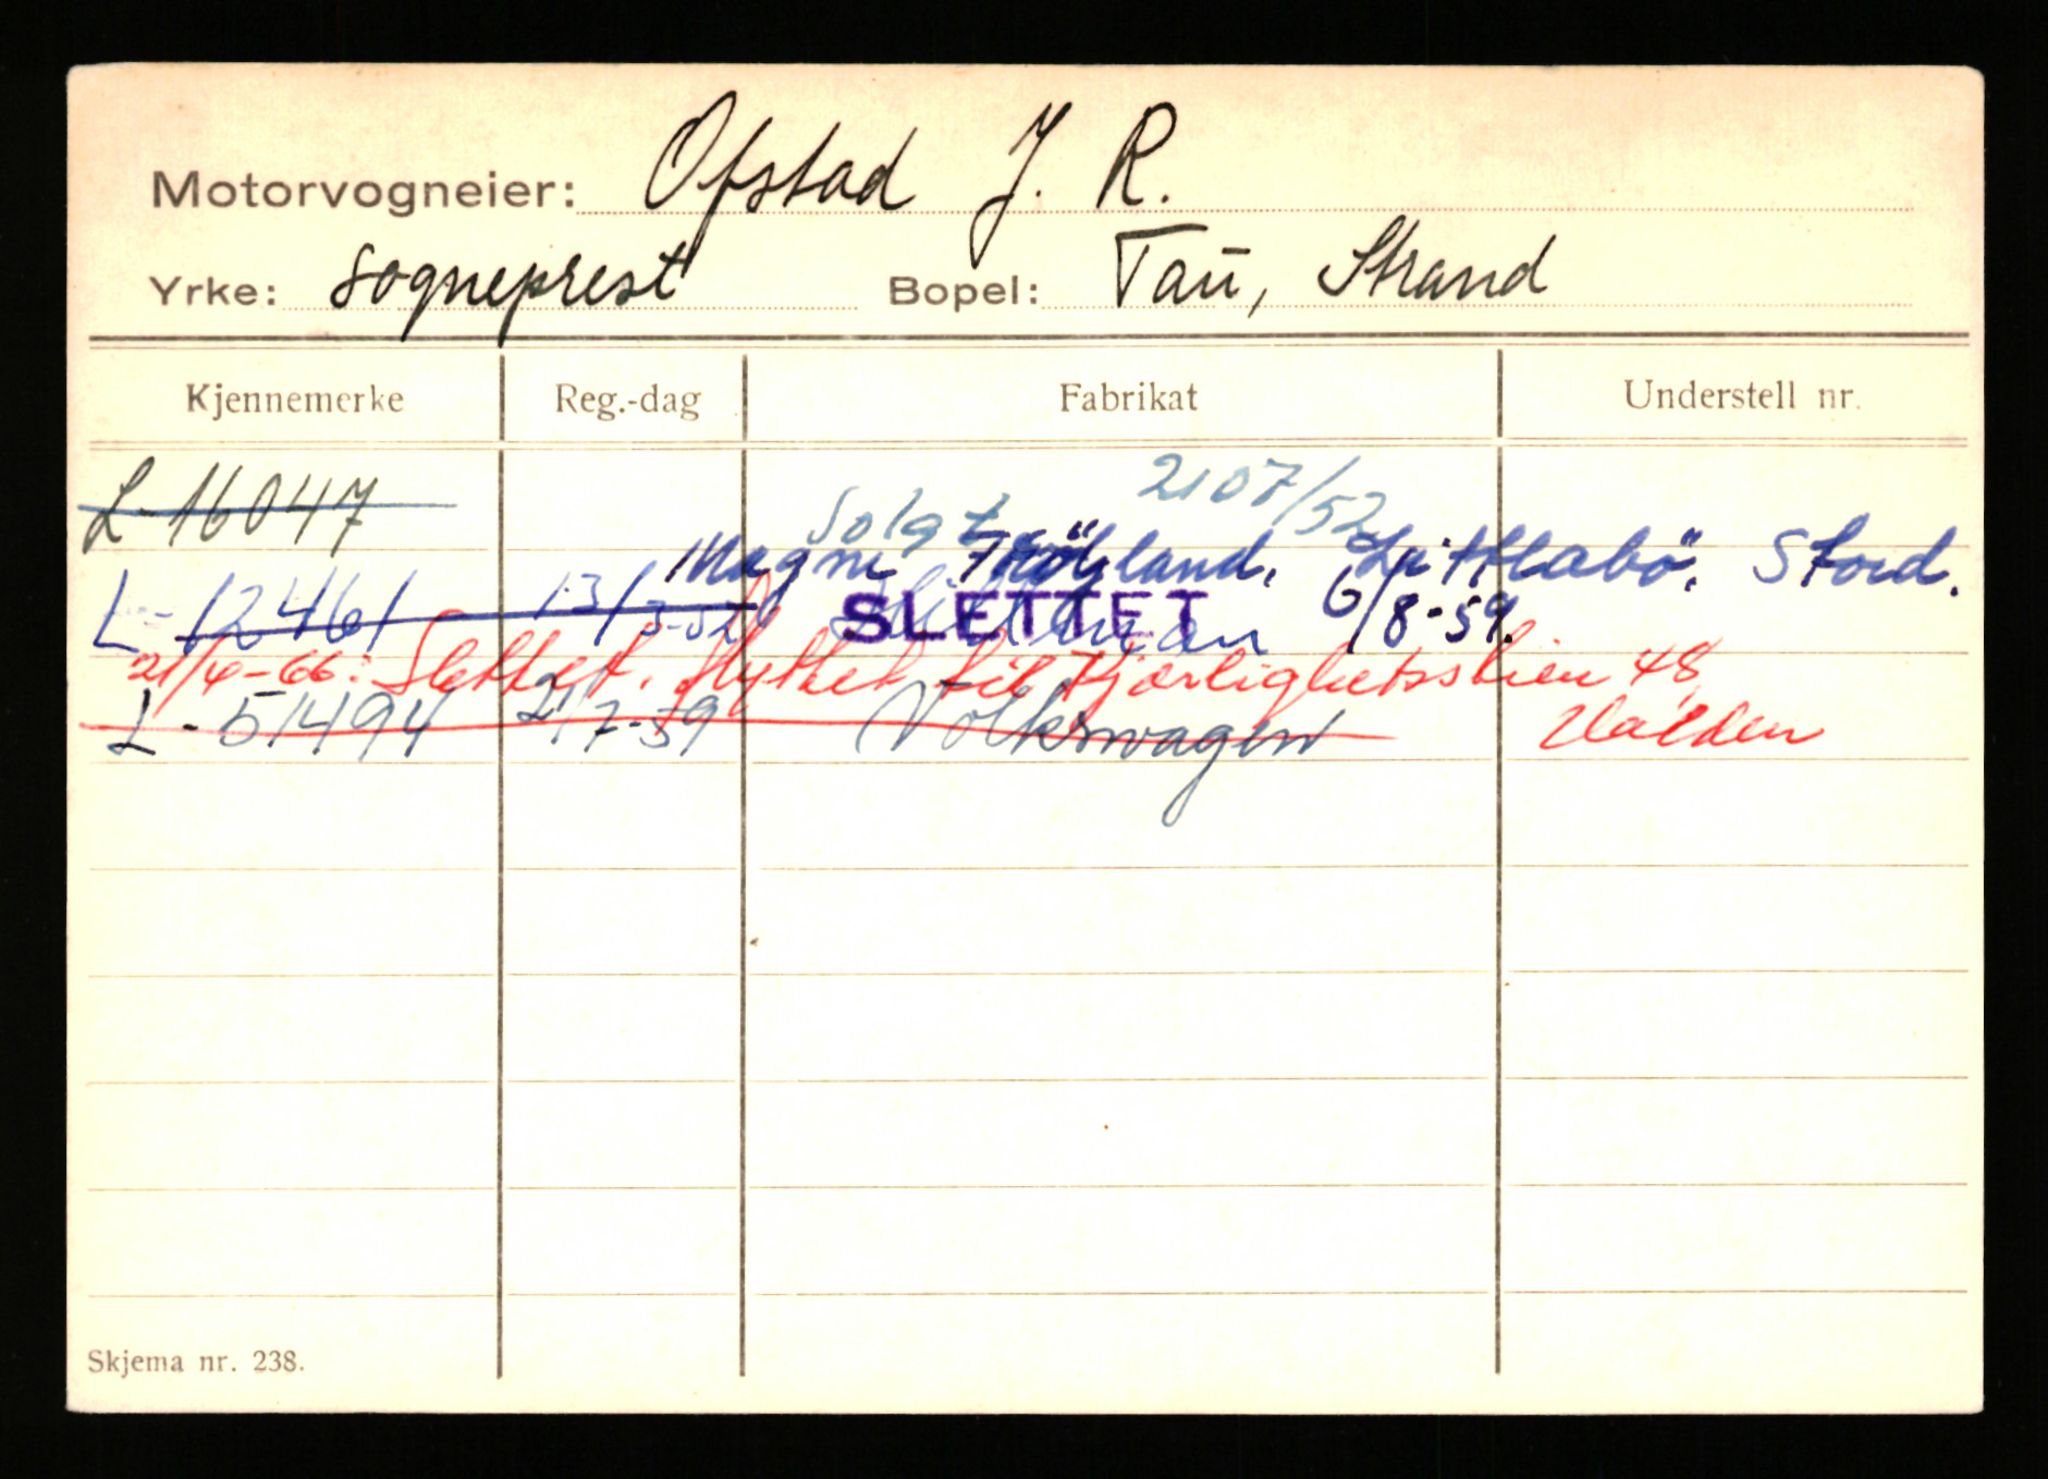 Motorvogneier: Ofstad J. R.
Yrke: sogneprest Bopel: Tau, Strand
Kjennemerke Reg.-dag Fabrikat Understell nr.
L-16047 Solgt 2107/52
Magne Litlabö, Stord.
L-12461 13/3-52 SLETTET 6/8-59.
21/4-66: Slettet, flyttet til Kjærlighetsstien 48,
L-51494 2/7-59 Volkswagen Halden
Skjema nr. 238.